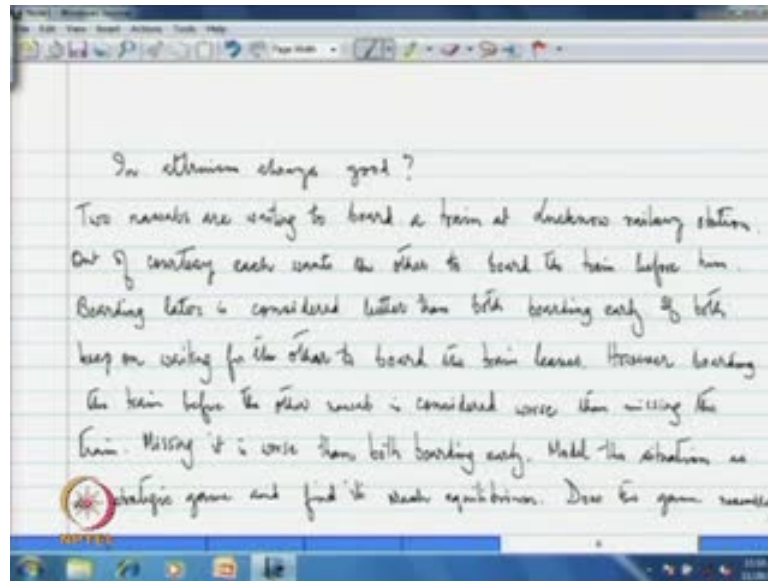 Edit View Insert Actions Tools Help
Page Width
Is altruism always good?
Two nawabs are waiting to board a train at Lucknow railway station.
Out of courtesy each wants the other to board the train before him.
Boarding later is considered better than both boarding early. If both
keep on waiting for the other to board the train leaves. However boarding
the train before the other nawab is considered worse than missing the
train. Missing it is worse than both boarding early. Model this situation as
strategic game and find its Nash equilibrium. Does the game
NPTEL